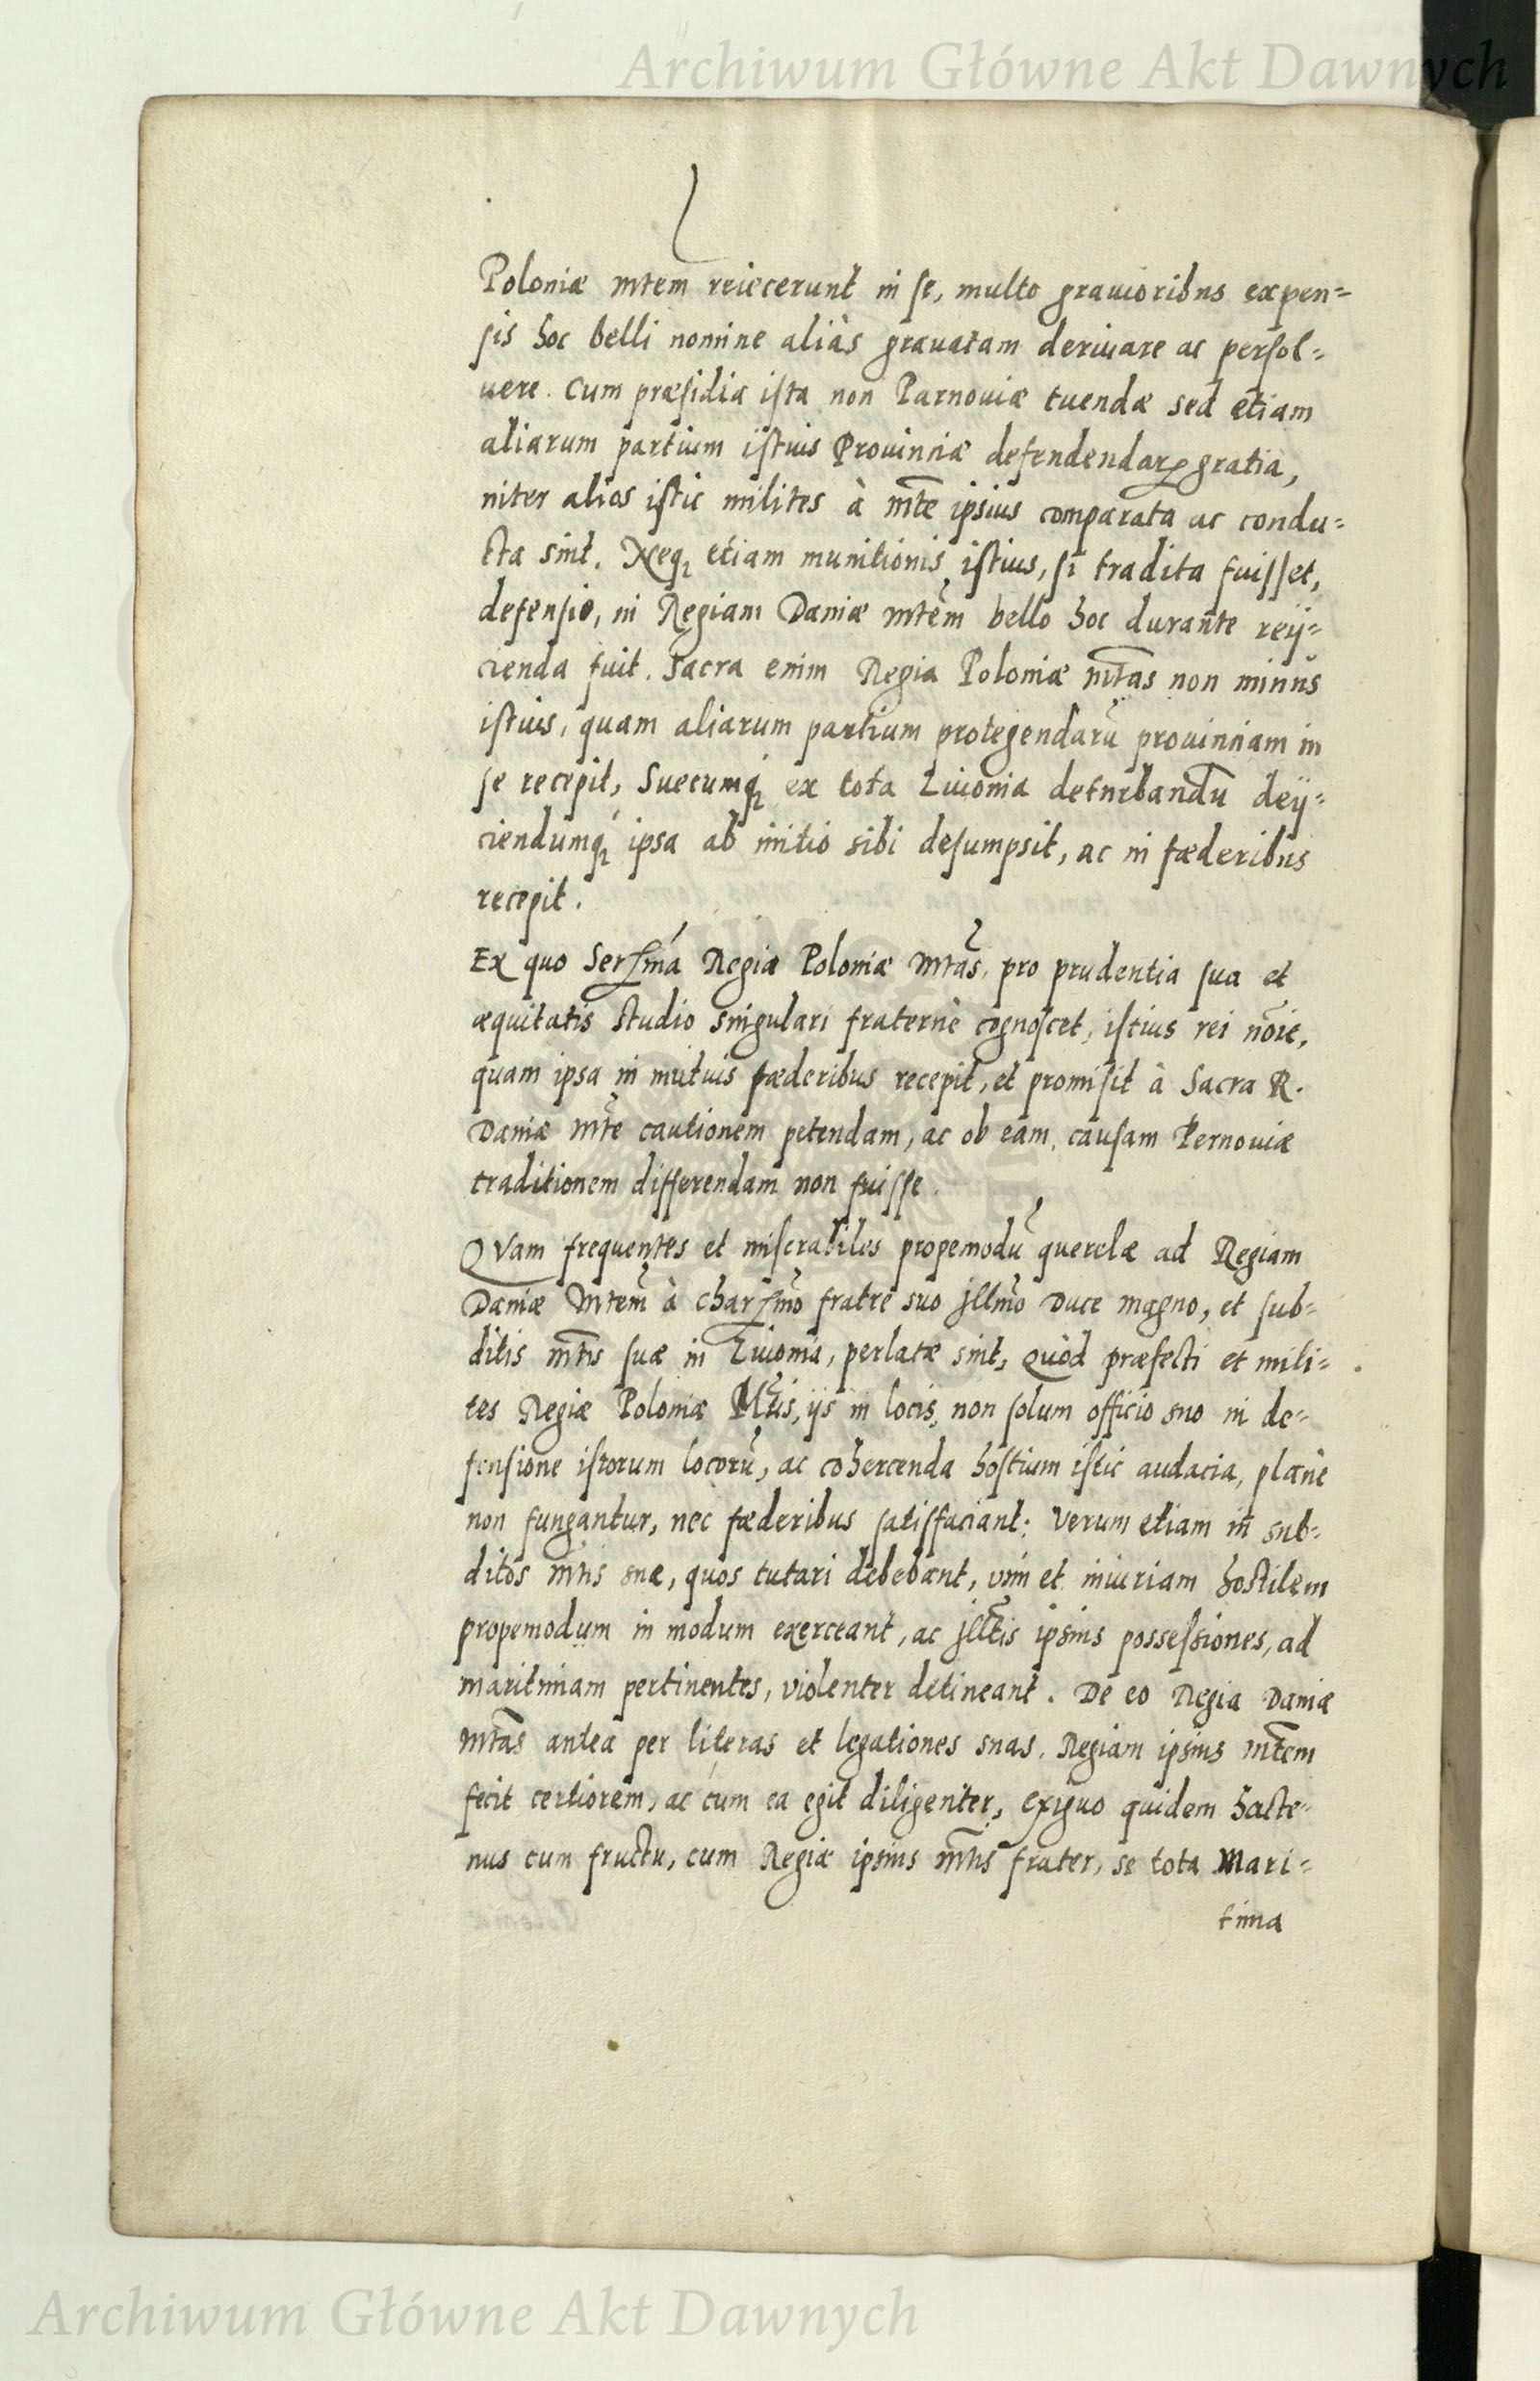 Archiwum Główne Akt Dawnych
Poloniæ Mtem reiecerunt in se, multo grauioribus expen=
sis hoc belli nomine aliàs grauatam deriuare ac persol=
uere. Cum præsidia ista non Parnouiæ tuendæ sed etiam
aliarum partium istius Prouinciæ defendendar gratia,
inter alios istic milites à Mte ipsius comparata ac condu=
cta sint. Neq etiam munitionis istius, si tradita fuisset,
defensio, in Regiam Daniæ Mtem bello hoc durante reij=
cienda fuit. Sacra enim Regia Poloniæ Mtas non minus
istius, quam aliarum partium protegendarū prouinciam in
se recepit, Suecumq ex tota Liuonia deturbandū deij=
ciendumq ipsa ab initio sibi desumpsit, ac in fæderibus
recepit.
Ex quo Serma Regia Poloniæ Mtas, pro prudentia sua et
æquitatis studio singulari fraternè cognoscet, istius rei noie,
quam ipsa in mutuis fæderibus recepit, et promisit à Sacra R.
Daniæ Mte cautionem petendam, ac ob eam causam Pernouiæ
traditionem differendam non fuisse.
QVam frequentes et miserabiles propemodū querelæ ad Regiam
Daniæ Mtem à charsmo fratre suo Jllmo Duce Magno, et sub=
ditis Mtis suæ in Liuonia, perlatæ sint, Quòd præfecti et mili=
tes Regiæ Poloniæ Mtis, ijs in locis, non solum officio suo in de=
fensione istorum locorū, ac cohercenda hostium istic audacia, planè
non fungantur, nec fæderibus satisfaciant: Verum etiam in sub=
ditos Mtis suæ, quos tutari debebant, vim et iniuriam hostilem
propemodum in modum exerceant, ac Jlltis ipsius possessiones, ad
maritimam pertinentes, violenter detineant. De eo Regia Daniæ
Mtas antea per literas et legationes suas, Regiam ipsius Mtem
fecit certiorem, ac cum ea egit diligenter, exiguo quidem hacte=
nus cum fructu, cum Regiæ ipsius Mtis frater, se tota Mari=
tima
Archiwum Główne Akt Dawnych